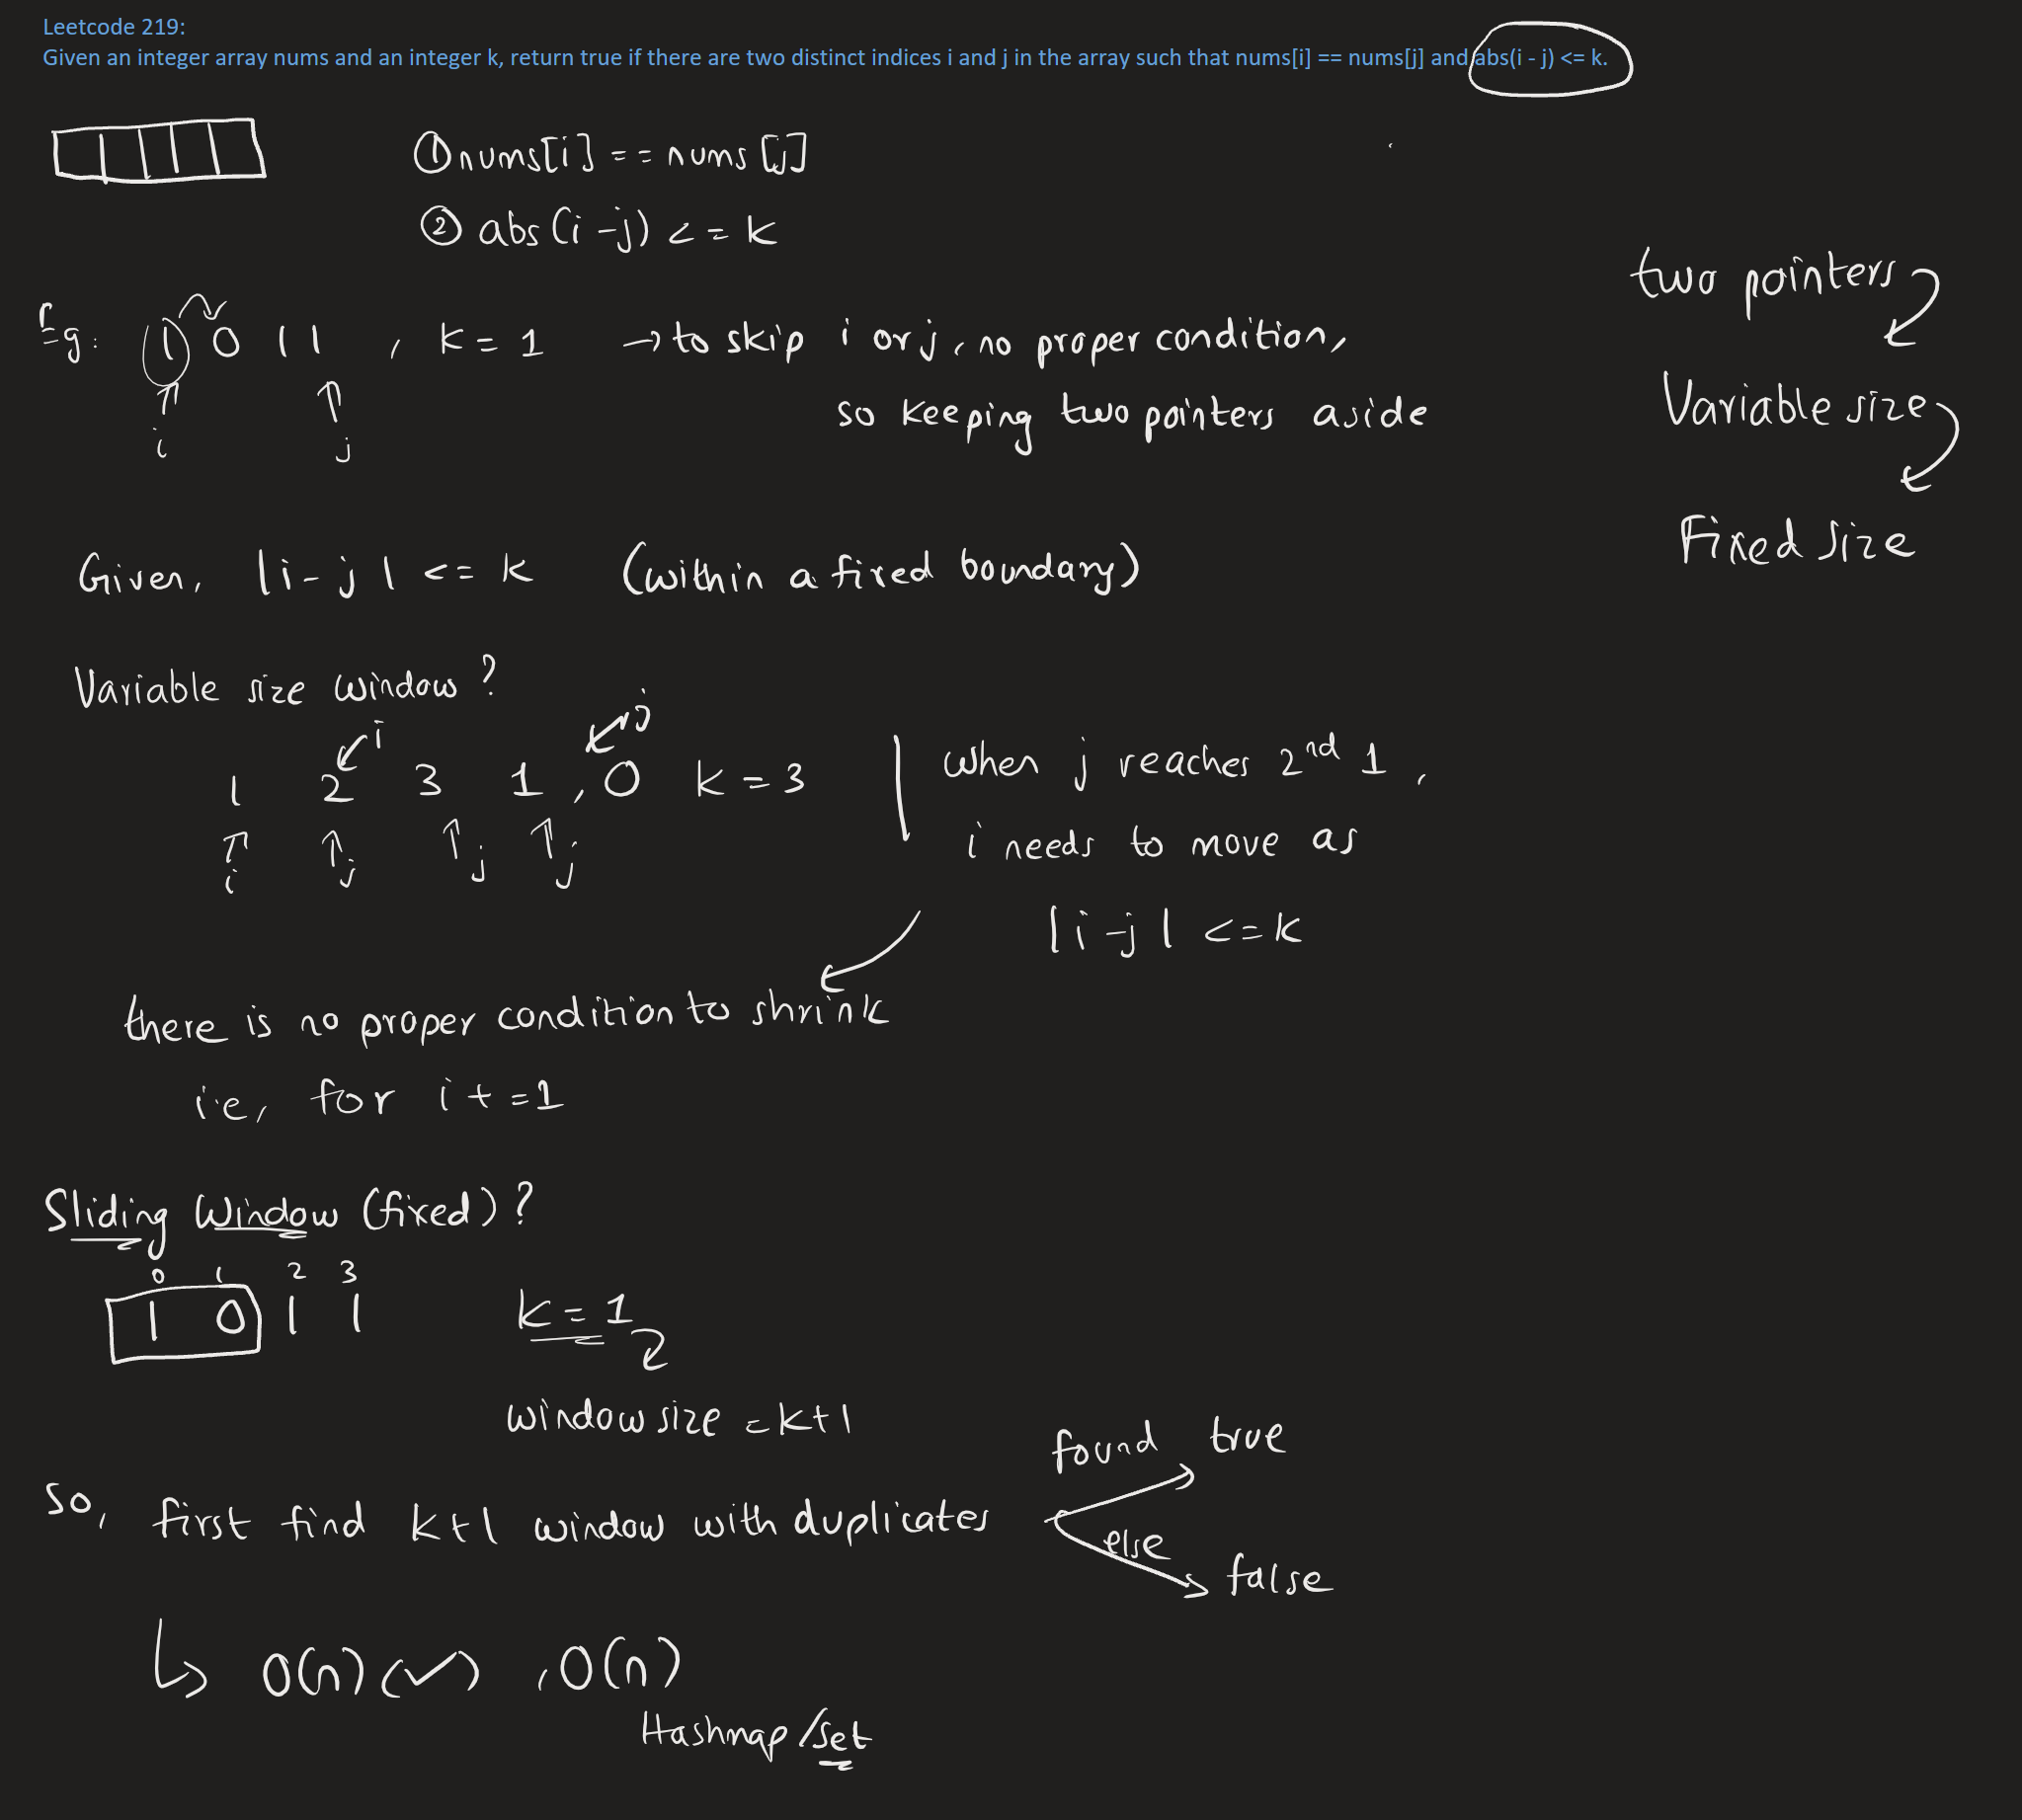 Leetcode 219:
Given an integer array nums and an integer k, return true if there are two distinct indices i and j in the array such that nums[i] == nums[j] and abs(i - j) <= k.
① nums[i] == nums[j]
② abs(i-j) <= k
two pointers
Eg: 1 0 1 1 , k = 1 → to skip i or j, no proper condition,
i j
so keeping two pointers aside
Variable size
Fixed size
Given, |i-j| <= k (within a fixed boundary)
Variable size window ?
i j
1 2 3 1 , 0 k = 3
i j j j
when j reaches 2nd 1 ,
i needs to move as
|i-j| <= k
there is no proper condition to shrink
i.e, for i += 1
Sliding Window (fixed) ?
0 1 2 3
1 0 1 1 k = 1
2
window size = k+1
found true
So, first find k+1 window with duplicates
else
false
↳ O(n) (✓) , O(n)
Hashmap / set